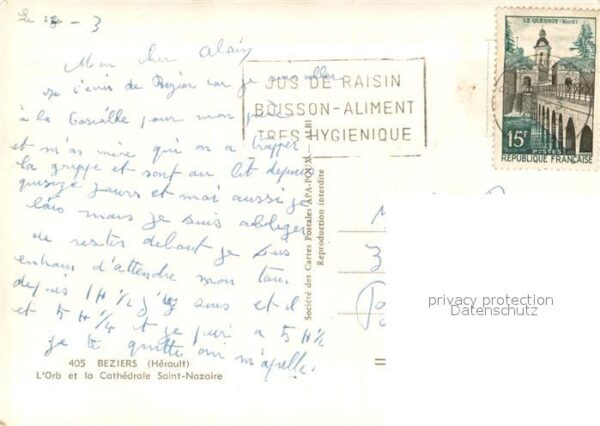 Le - 3
Mon cher Alain
Je t'écris de Bezier car je suis aller
à la pour mon père
et m'a mère qui on a trapper
la grippe et sont au lit depuis
quinze jours et moi aussi je
l'ais mais je suis obliger
de rester debout je suis
entrain d'attendre mon tour
depuis 1H ½ j'y suis et il
et 5 H ¼ et je a 5 H ½
je te quitte on m'apelle.
JUS DE RAISIN
BOISSON-ALIMENT
TRES HYGIENIQUE
LE QUESNOY (Nord)
15F
POSTES
REPUBLIQUE FRANÇAISE
Société des Cartes Postales APA-POUX — ALBI
Reproduction interdite
privacy protection
Datenschutz
405 BEZIERS (Hérault)
L'Orb et la Cathédrale Saint-Nazaire